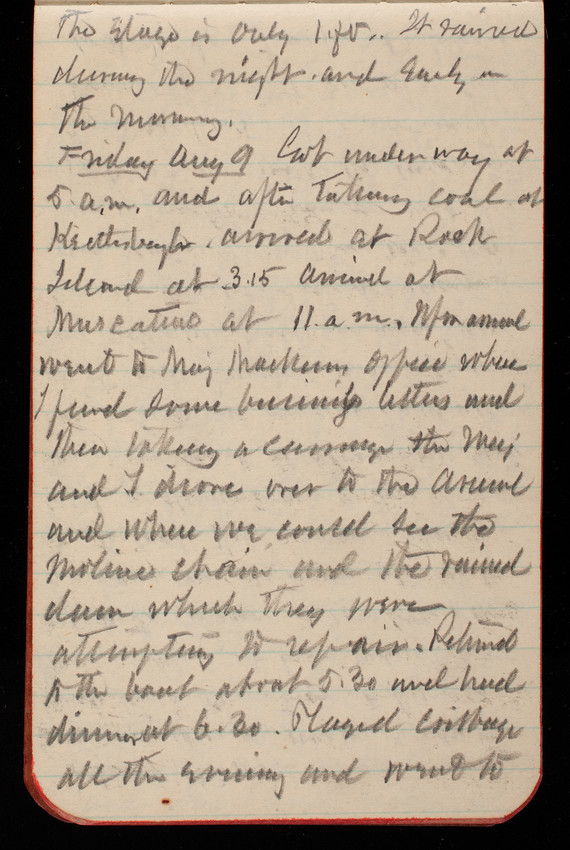 the stage is only 1.80.. It rained
during the night and early in
the morning.
Friday Aug 9 Got under way at
5 a.m. and after taking coal at
Keithsburgh. arrived at Rock
Island at 3.15 arrived at
Muscatine at 11. a.m. Upon arrival
went to Maj Mackenzies office where
I found some business letters and
then taking a carriage the Maj
and I drove over to the Arsenal
and where we could see the
Moline chain and the ruined
dam which they were
attempting to repair. Returned
to the boat about 5.30 and had
dinner at 6.30. Played cribbage
all the evening and went to